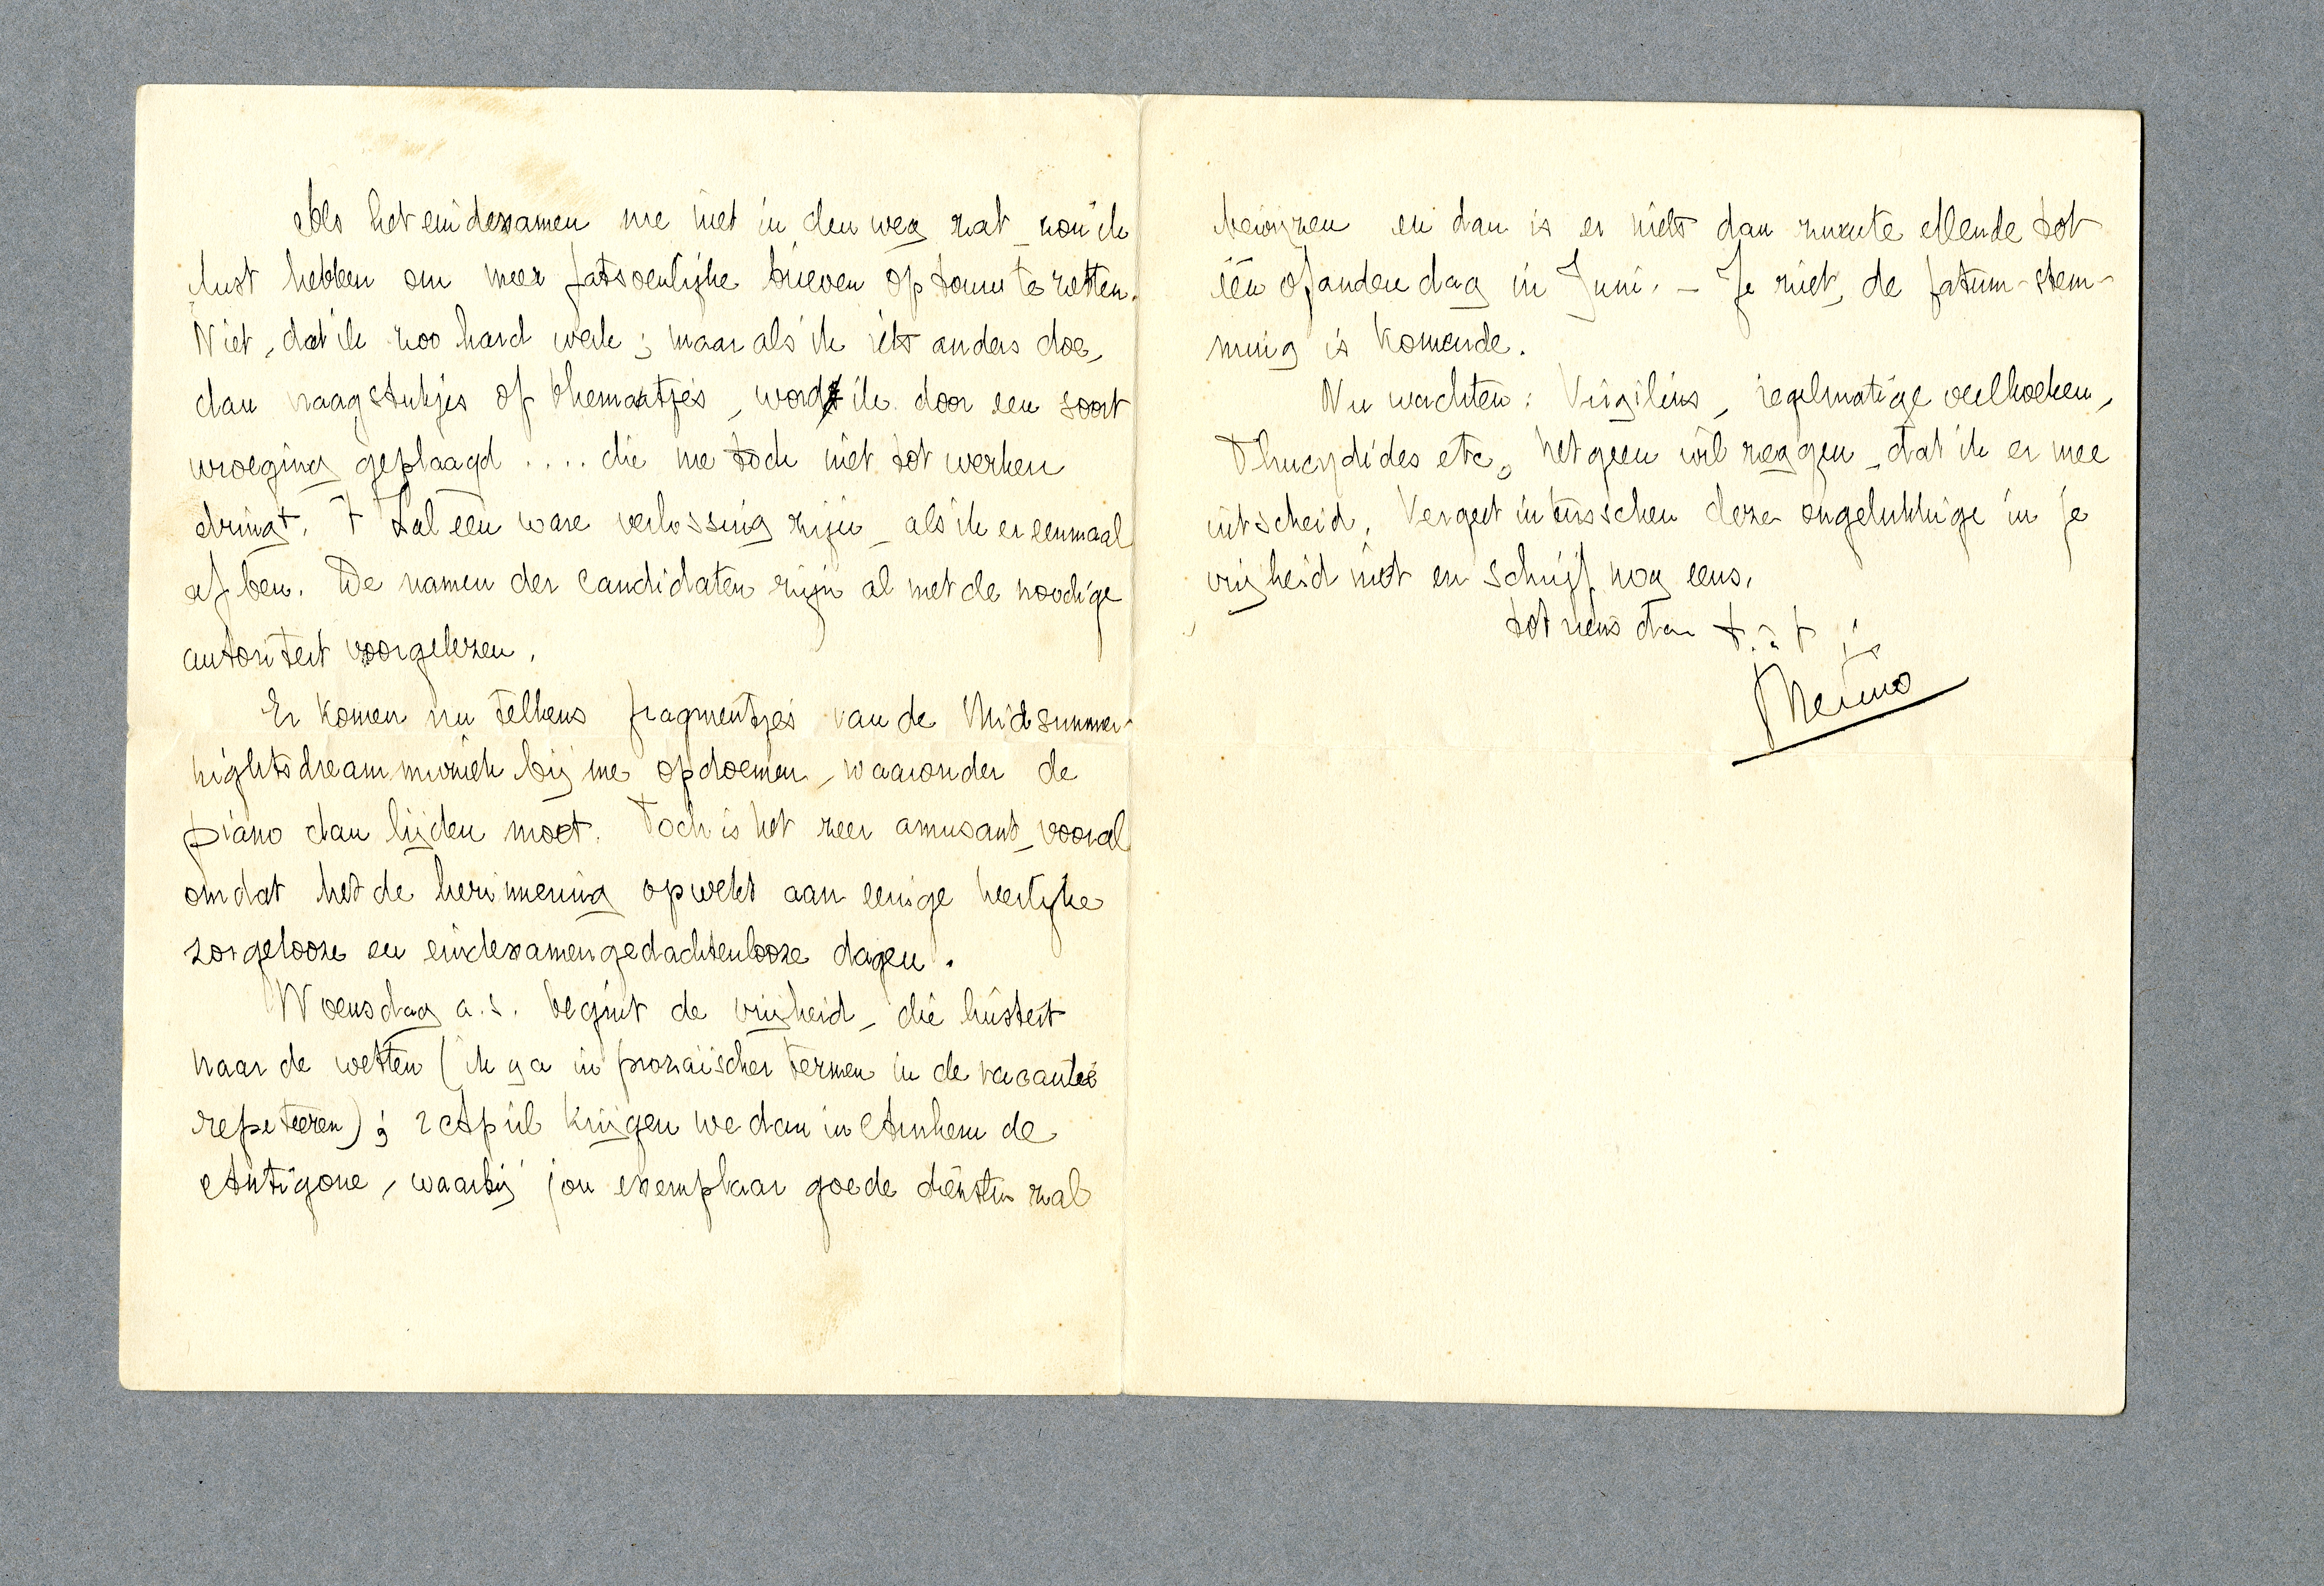 Als het eindexamen me niet in den weg zat, zou ik
lust hebben om meer fatsoenlijke brieven op touw te zetten.
Niet, dat ik zoo hard werk; maar als ik iets anders doe,
dan vraagstukjes of themaatjes, word ik door een soort
wroeging geplaagd .... die me toch niet tot werken
dringt. 't Zal een ware verlossing zijn, als ik er eenmaal
af ben. De namen der candidaten zijn al met de noodige
autoriteit voorgelezen.
Er komen nu telkens fragmentjes van de Midsummer-
nightsdreammuziek bij me opdoemen, waaronder de
piano dan lijden moet. Toch is het zeer amusant, vooral
omdat het de herinnering opwekt aan eenige heerlijke
zorgelooze en eindexamengedachtenlooze dagen.
Woensdag a.s. begint de vrijheid, die luistert
naar de wetten (ik ga in prozaïscher termen in de vacantie
repeteeren); 2 April krijgen we dan in Arnhem de
Antigone, waarbij jou exemplaar goede diensten zal
bewijzen en dan is er niets dan zwarte ellende tot
één of andere dag in Juni. – Je ziet, de fatum-stem-
ming is komende.
Nu wachten: Virgilius, regelmatige veelhoeken,
Thucydides etc, hetgeen wil zeggen, dat ik er mee
uitscheid. Vergeet intusschen deze ongelukkige in je
vrijheid niet en schrijf nog eens.
tot ziens dan t. à t
Menno